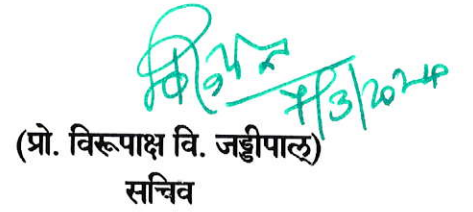 7/3/2024
(प्रो. विरूपाक्ष वि. जड्डीपाल्)
सचिव